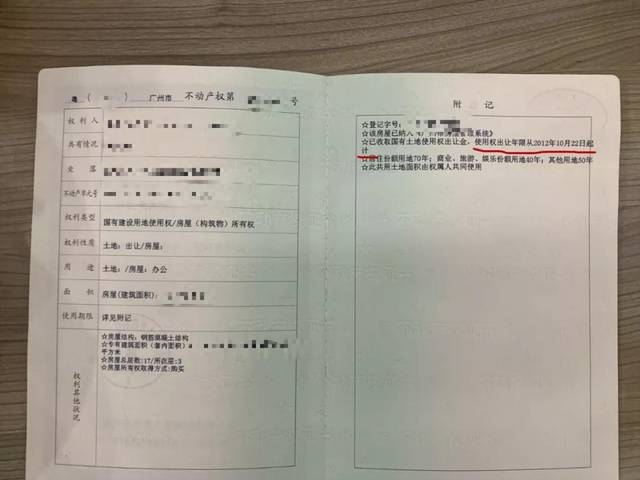 粤（ ）广州市 不动产权第 号
权利人
共有情况
坐落
不动产单元号
权利类型 国有建设用地使用权/房屋（构筑物）所有权
权利性质 土地：出让/房屋：
用途 土地：/房屋：办公
面积 房屋(建筑面积)：
使用期限 详见附记
权利其他状况
☆房屋结构：钢筋混凝土结构
☆专有建筑面积（套内面积）
平方米
☆房屋总层数:17/所在层:3
☆房屋所有权取得方式:购买
附记
☆登记字号：
☆该房屋已纳入 系统》
☆已收取国有土地使用权出让金，使用权出让年限从2012年10月22日起
计
☆居住份额用地70年；商业、旅游、娱乐份额用地40年；其他用地50年
☆此共用土地面积由权属人共同使用